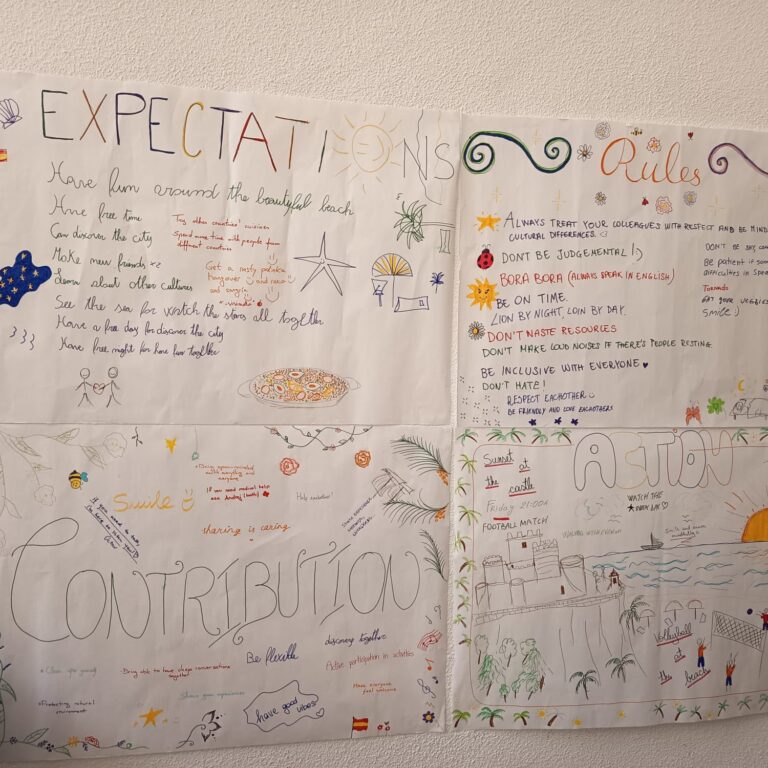 EXPECTATIONS
Have fun around the beautyful beach
Have free time
Can discover the city
Make new friends
Learn about other cultures
See the sea for watch the stars all together
Have a free day for discover the city
Have free night for have fun together
Try other countries' cuisines
Spend some time with people from
different countries
Get a nasty
and
and sangria
Rules
ALWAYS TREAT YOUR COLLEAGUES WITH RESPECT AND BE MIND
CULTURAL DIFFERENCES.
DON'T BE JUDGEMENTAL! :)
BORA BORA (ALWAYS SPEAK IN ENGLISH)
BE ON TIME.
LION BY NIGHT, LOIN BY DAY.
DON'T WASTE RESOURCES
DON'T MAKE LOUD NOISES IF THERE'S PEOPLE RESTING.
BE INCLUSIVE WITH EVERYONE ♥
DON'T HATE!
RESPECT EACHOTHER
BE FRIENDLY AND LOVE EACHOTHERS
DON'T BE SHY,
Be patient if som
difficulties in spea
Tornado
EAT YOUR VEGGIES
SMILE :)
Smile
If you need medical help
ask Andrej
Help eachother!
sharing is caring
CONTRIBUTION
Be flexible
discovery together
Active participation in activities
• Clean up
• Being able to have deeps conversations
together
Share your experiences
Make everyone
feel welcome
• Protecting natural
environment
have good
vibes
ACTION
Sunset at
the castle
Friday 21:00h
FOOTBALL MATCH
WATCH THE
Volleyball
at
the beach